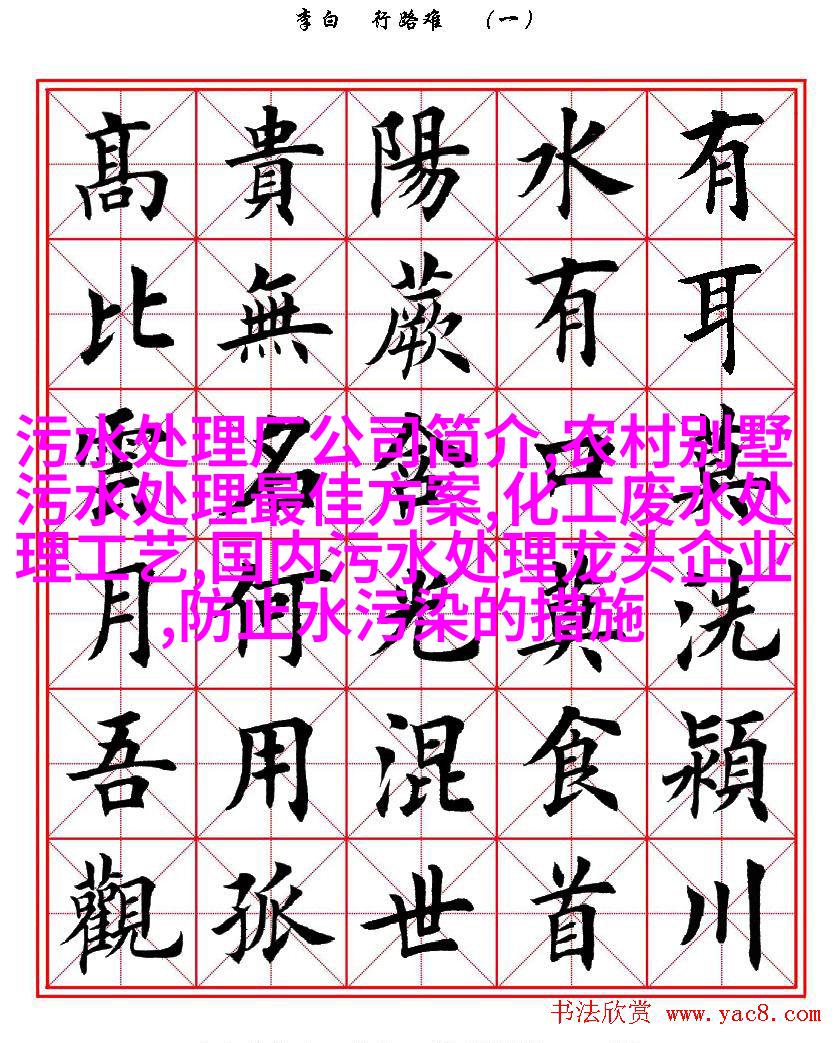 李白 行路难 (一)
有耳莫洗潁川
水有口莫食首
陽蕨含光混世
貴無名何用孤
高比雲月吾觀
污水处理厂公司简介,农村别墅
污水处理最佳方案,化工废水处
理工艺,国内污水处理龙头企业
,防止水污染的措施
书法欣赏 www.yac8.com